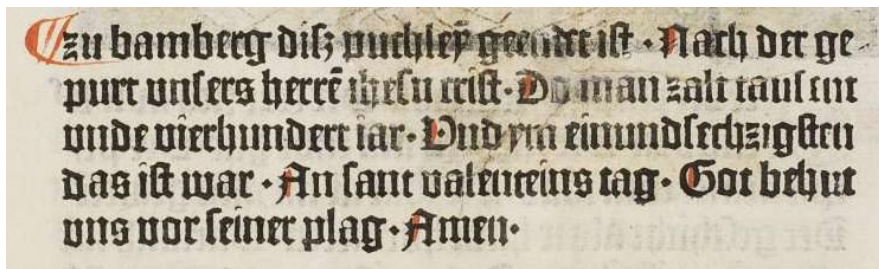 zu bamberg diſz puchleȳ geendet iſt · Nach der ge
purt vnſers herrē iheſu criſt · Do man zalt tauſent
vnde vierhundert iar · Vnd ym einundſechzigſten
das iſt war · An ſant valenteins tag · Got behut
vns vor ſeiner plag · Amen ·